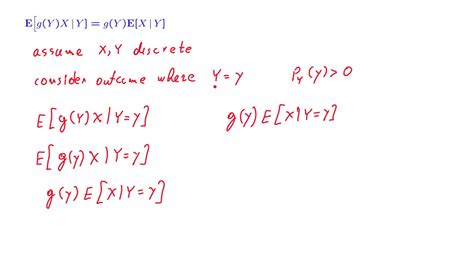 E[g(Y)X | Y] = g(Y)E[X | Y]
assume X, Y discrete
consider outcome where Y = y   P_Y(y) > 0
E[g(Y)X | Y=y]   g(y) E[X | Y=y]
E[g(y)X | Y=y]
g(y) E[X | Y=y]